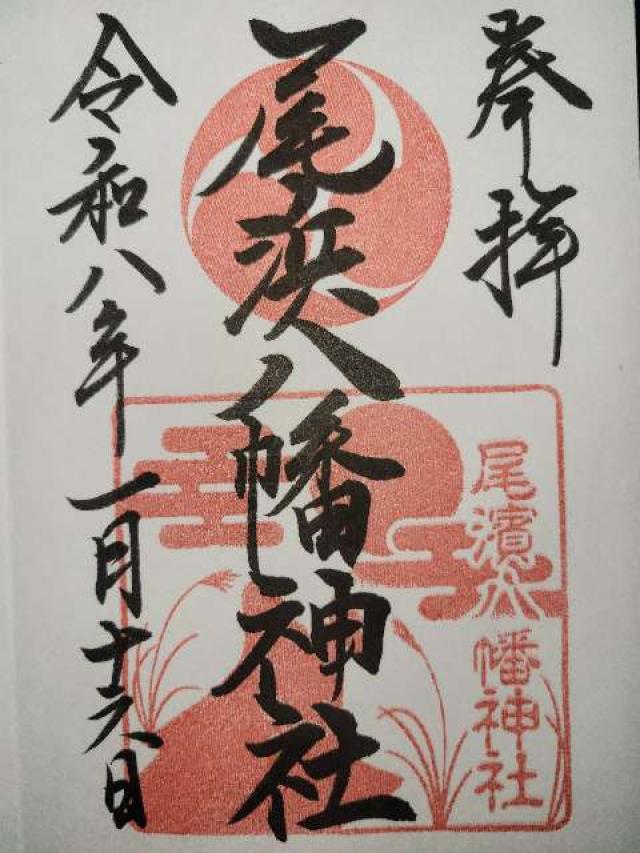 奉拝
尾浜八幡神社
尾濱八幡神社
令和八年一月十六日